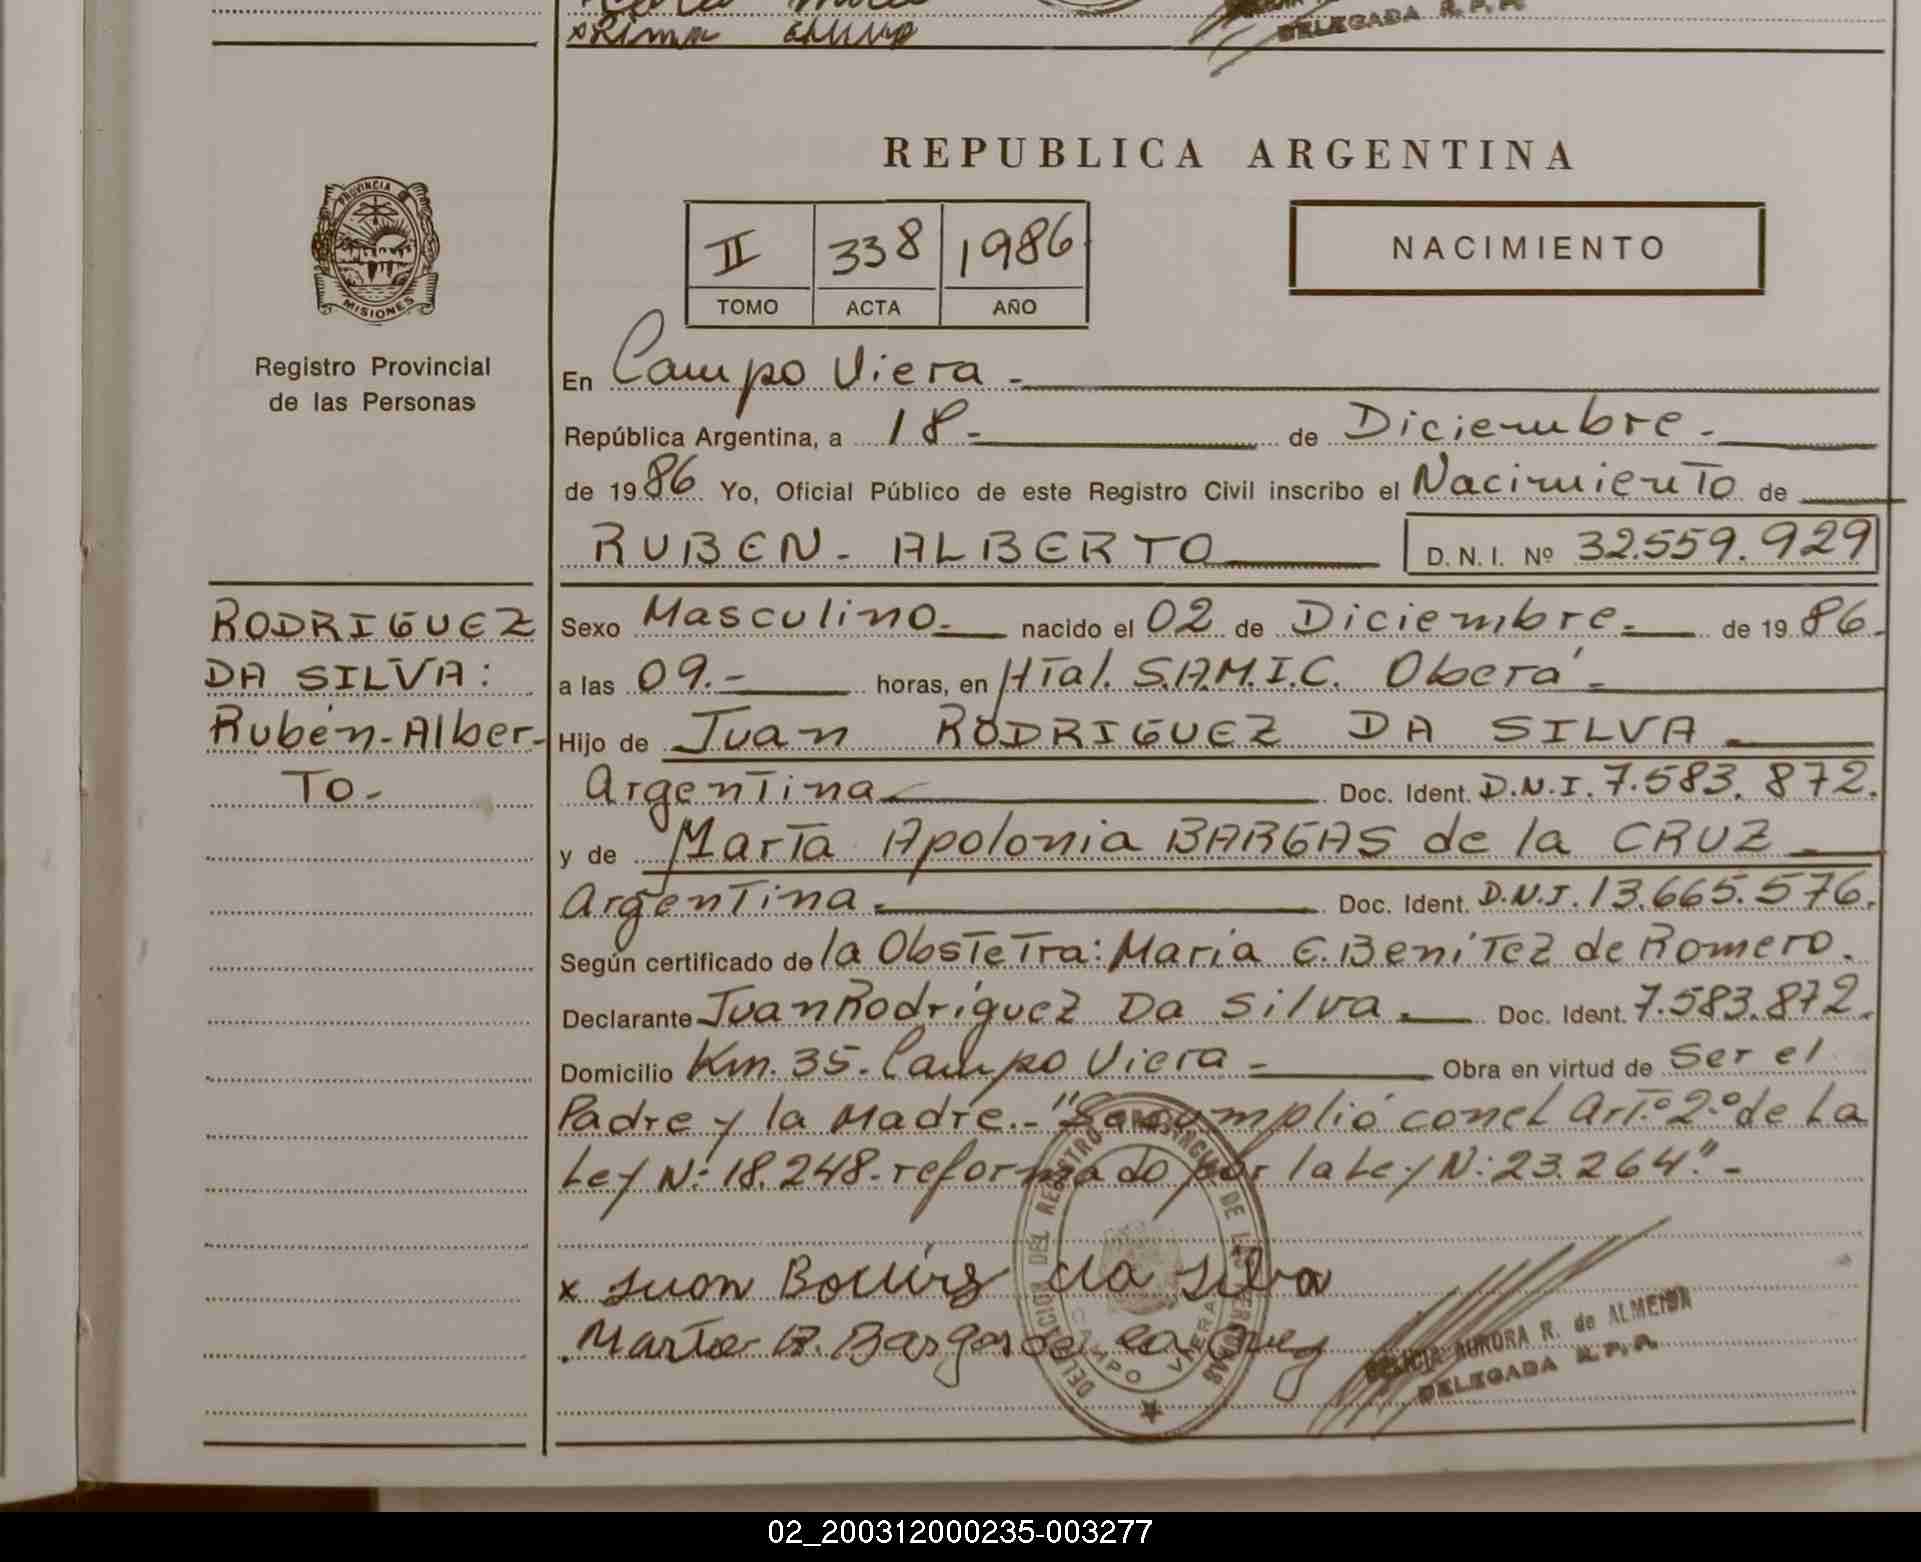 DELEGADA R. P. P.
REPUBLICA ARGENTINA
PROVINCIA
MISIONES
II 338 1986
TOMO ACTA AÑO
NACIMIENTO
Registro Provincial
de las Personas
En Campo Viera -
República Argentina, a 18 - de Diciembre -
de 1986 Yo, Oficial Público de este Registro Civil inscribo el Nacimiento de
RUBEN - ALBERTO D. N. I. Nº 32.559.929
RODRIGUEZ
DA SILVA:
Rubén - Alber-
to -
Sexo Masculino. nacido el 02 de Diciembre. de 1986.
a las 09.- horas, en Htal. S.A.M.I.C. Oberá -
Hijo de Juan RODRIGUEZ DA SILVA
Argentina Doc. Ident. D.N.I. 7.583.872.
y de Marta Apolonia BARGAS de la CRUZ
Argentina. Doc. Ident. D.N.I. 13.665.576.
Según certificado de la Obstetra: Maria E. Benitez de Romero.
Declarante Juan Rodríguez Da Silva. Doc. Ident. 7.583.872.
Domicilio Km. 35 - Campo Viera - Obra en virtud de Ser el
Padre y la Madre.- "Se cumplió con el Art.º 2.º de La
Ley N: 18.248 - reformado por la Ley N: 23.264." -
DELEGACION DEL REGISTRO PROVINCIAL DE LAS PERSONAS
CAMPO VIERA
x Juan Rodrigs da silva
Marta A. Bargas de la Cruz
DELICIA AURORA R. de ALMEIDA
DELEGADA R. P. P.
02_200312000235-003277